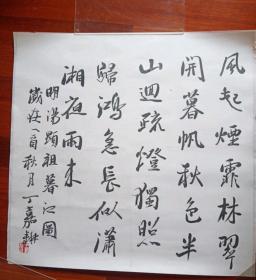 風起煙霏林翠
開暮帆秋色半
山迴疏燈獨照
歸鴻急長似瀟
湘夜雨來
明湯顯祖暮江圖
歲在八酉秋月丁嘉耕